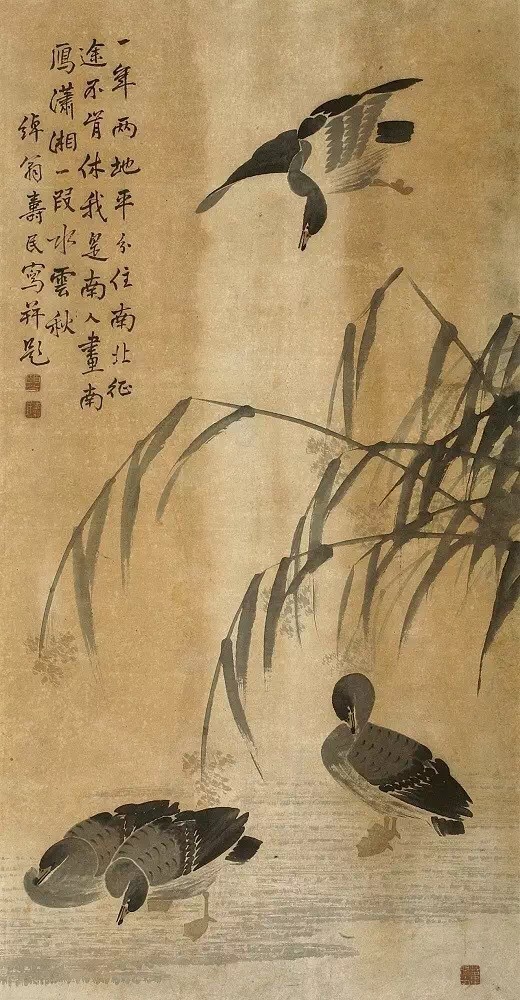 一年两地平分住南北征
途不肯休我是南人画南
雁潇湘一段水云秋
绰翁寿民写并题